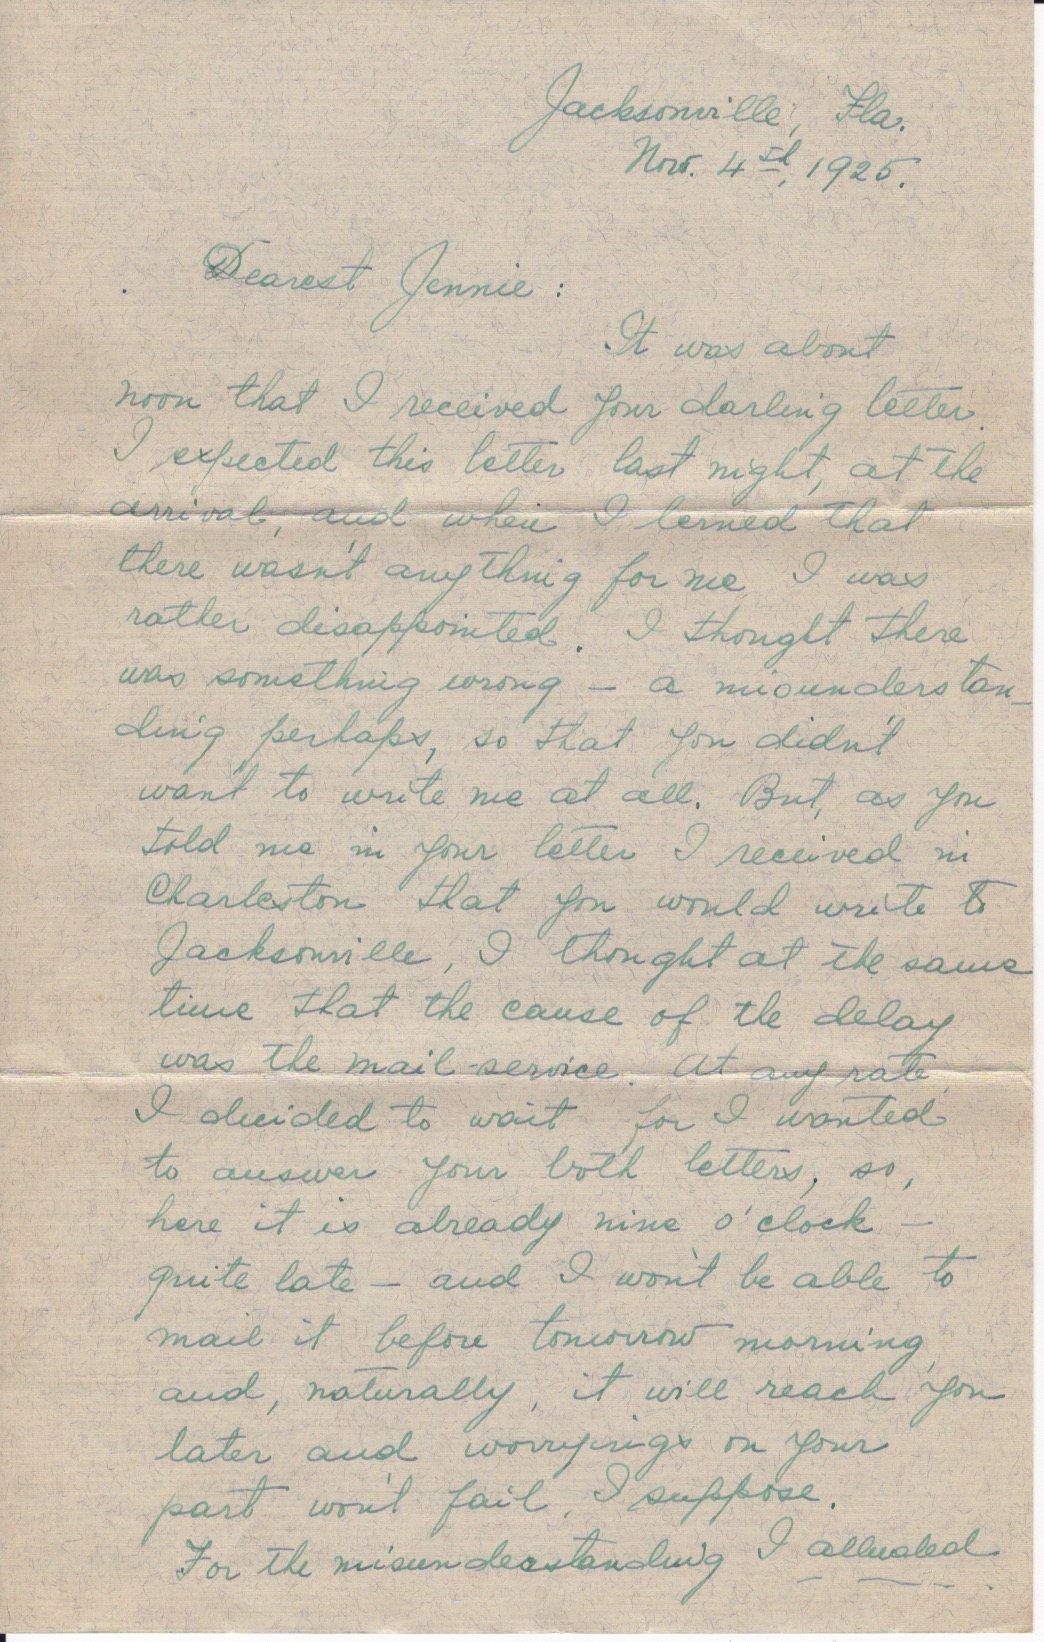 Jacksonville, Fla.
Nov. 4th, 1925.
Dearest Jennie:
It was about
noon that I received your darling letter.
I expected this letter last night, at the
arrival, and when I lerned that
there wasn't anything for me I was
rather disappointed. I thought there
was something wrong – a misunderstan-
ding perhaps, so that you didn't
want to write me at all. But, as you
told me in your letter I received in
Charleston that you would write to
Jacksonville, I thought at the same
time that the cause of the delay
was the mail-service. At any rate,
I decided to wait for I wanted
to answer your both letters, so,
here it is already nine o'clock –
quite late – and I won't be able to
mail it before tomorrow morning,
and, naturally, it will reach you
later and worryings on your
part won't fail, I suppose.
For the misunderstanding I